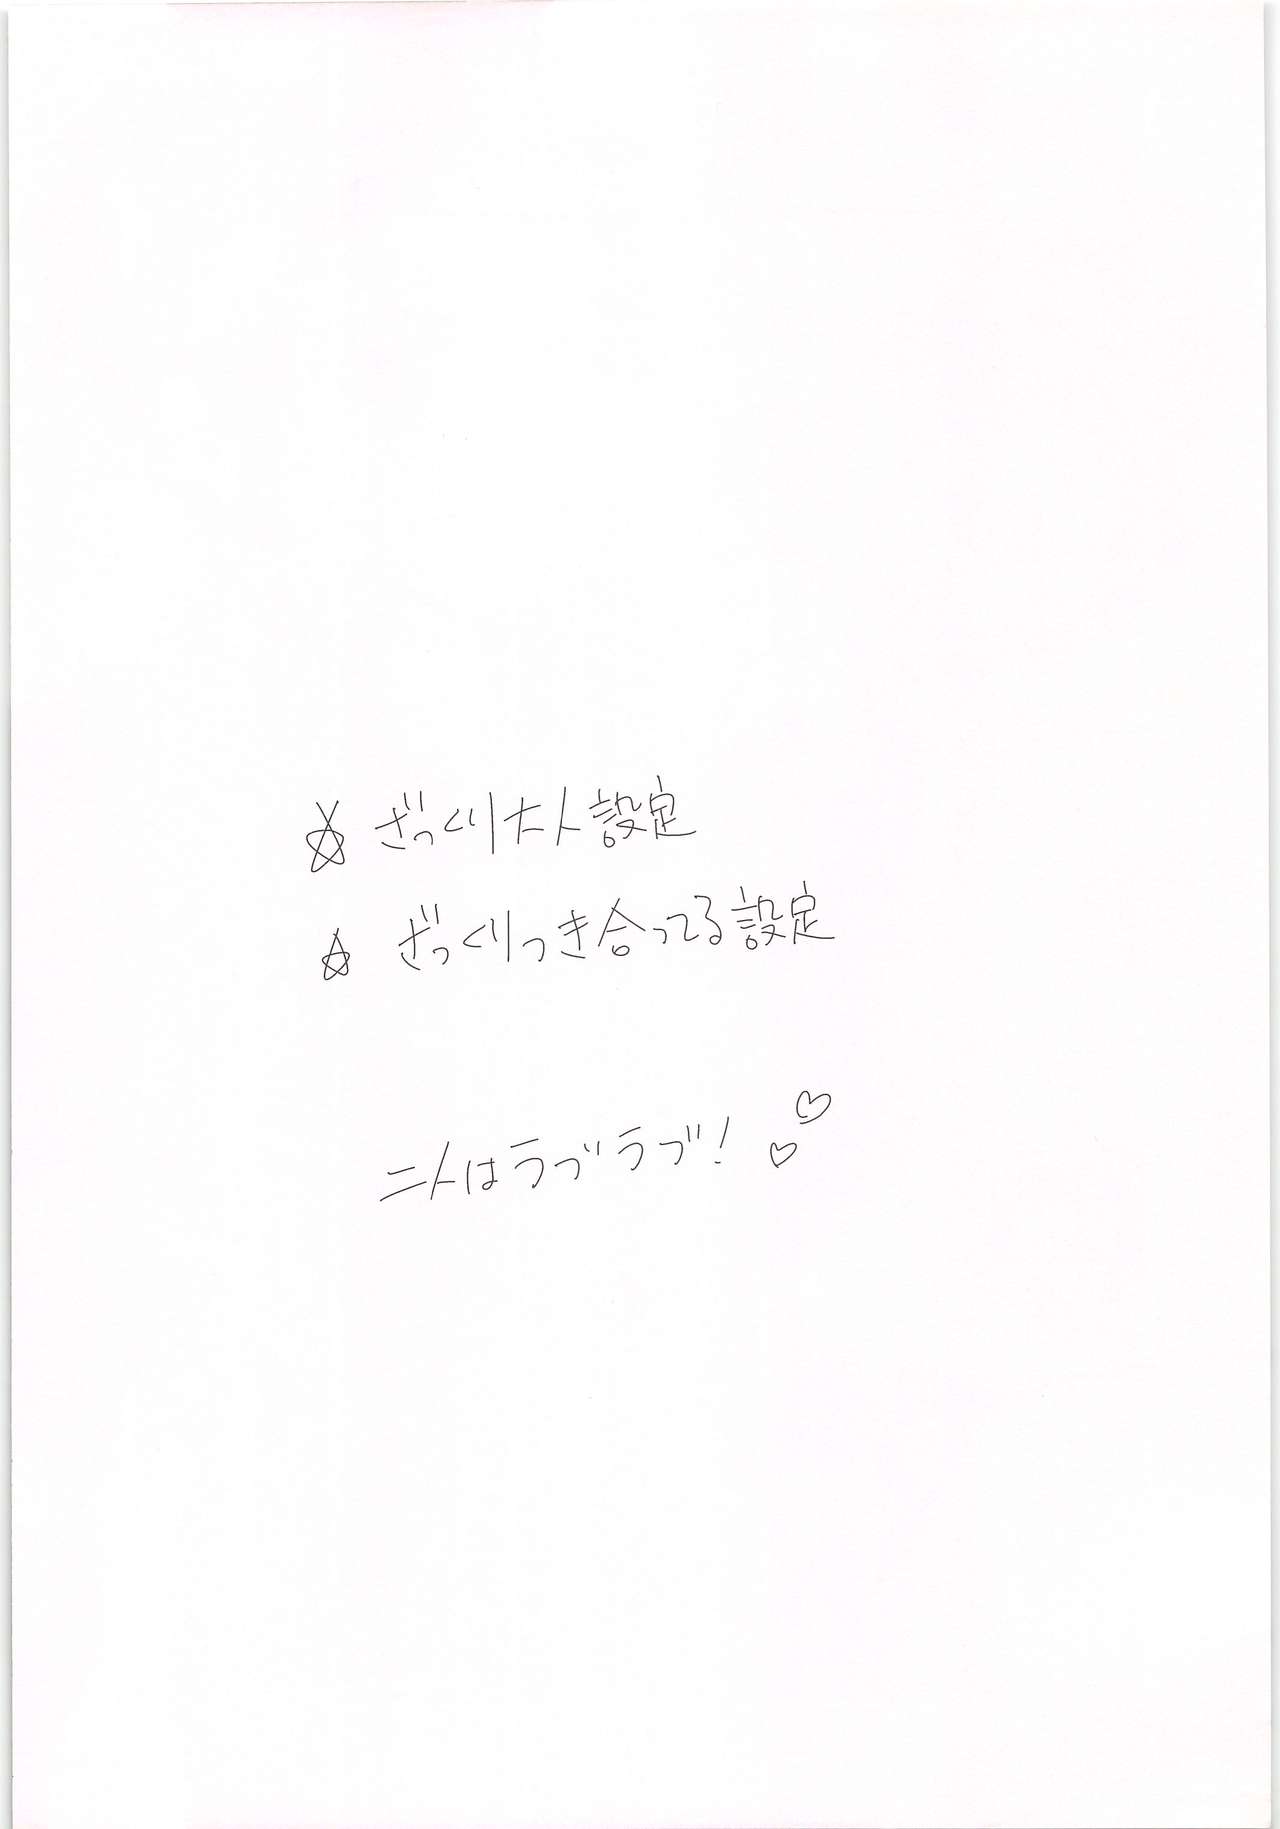 ☆ ざっくり大人設定
☆ ざっくりつき合ってる設定
二人はラブラブ!♡♡